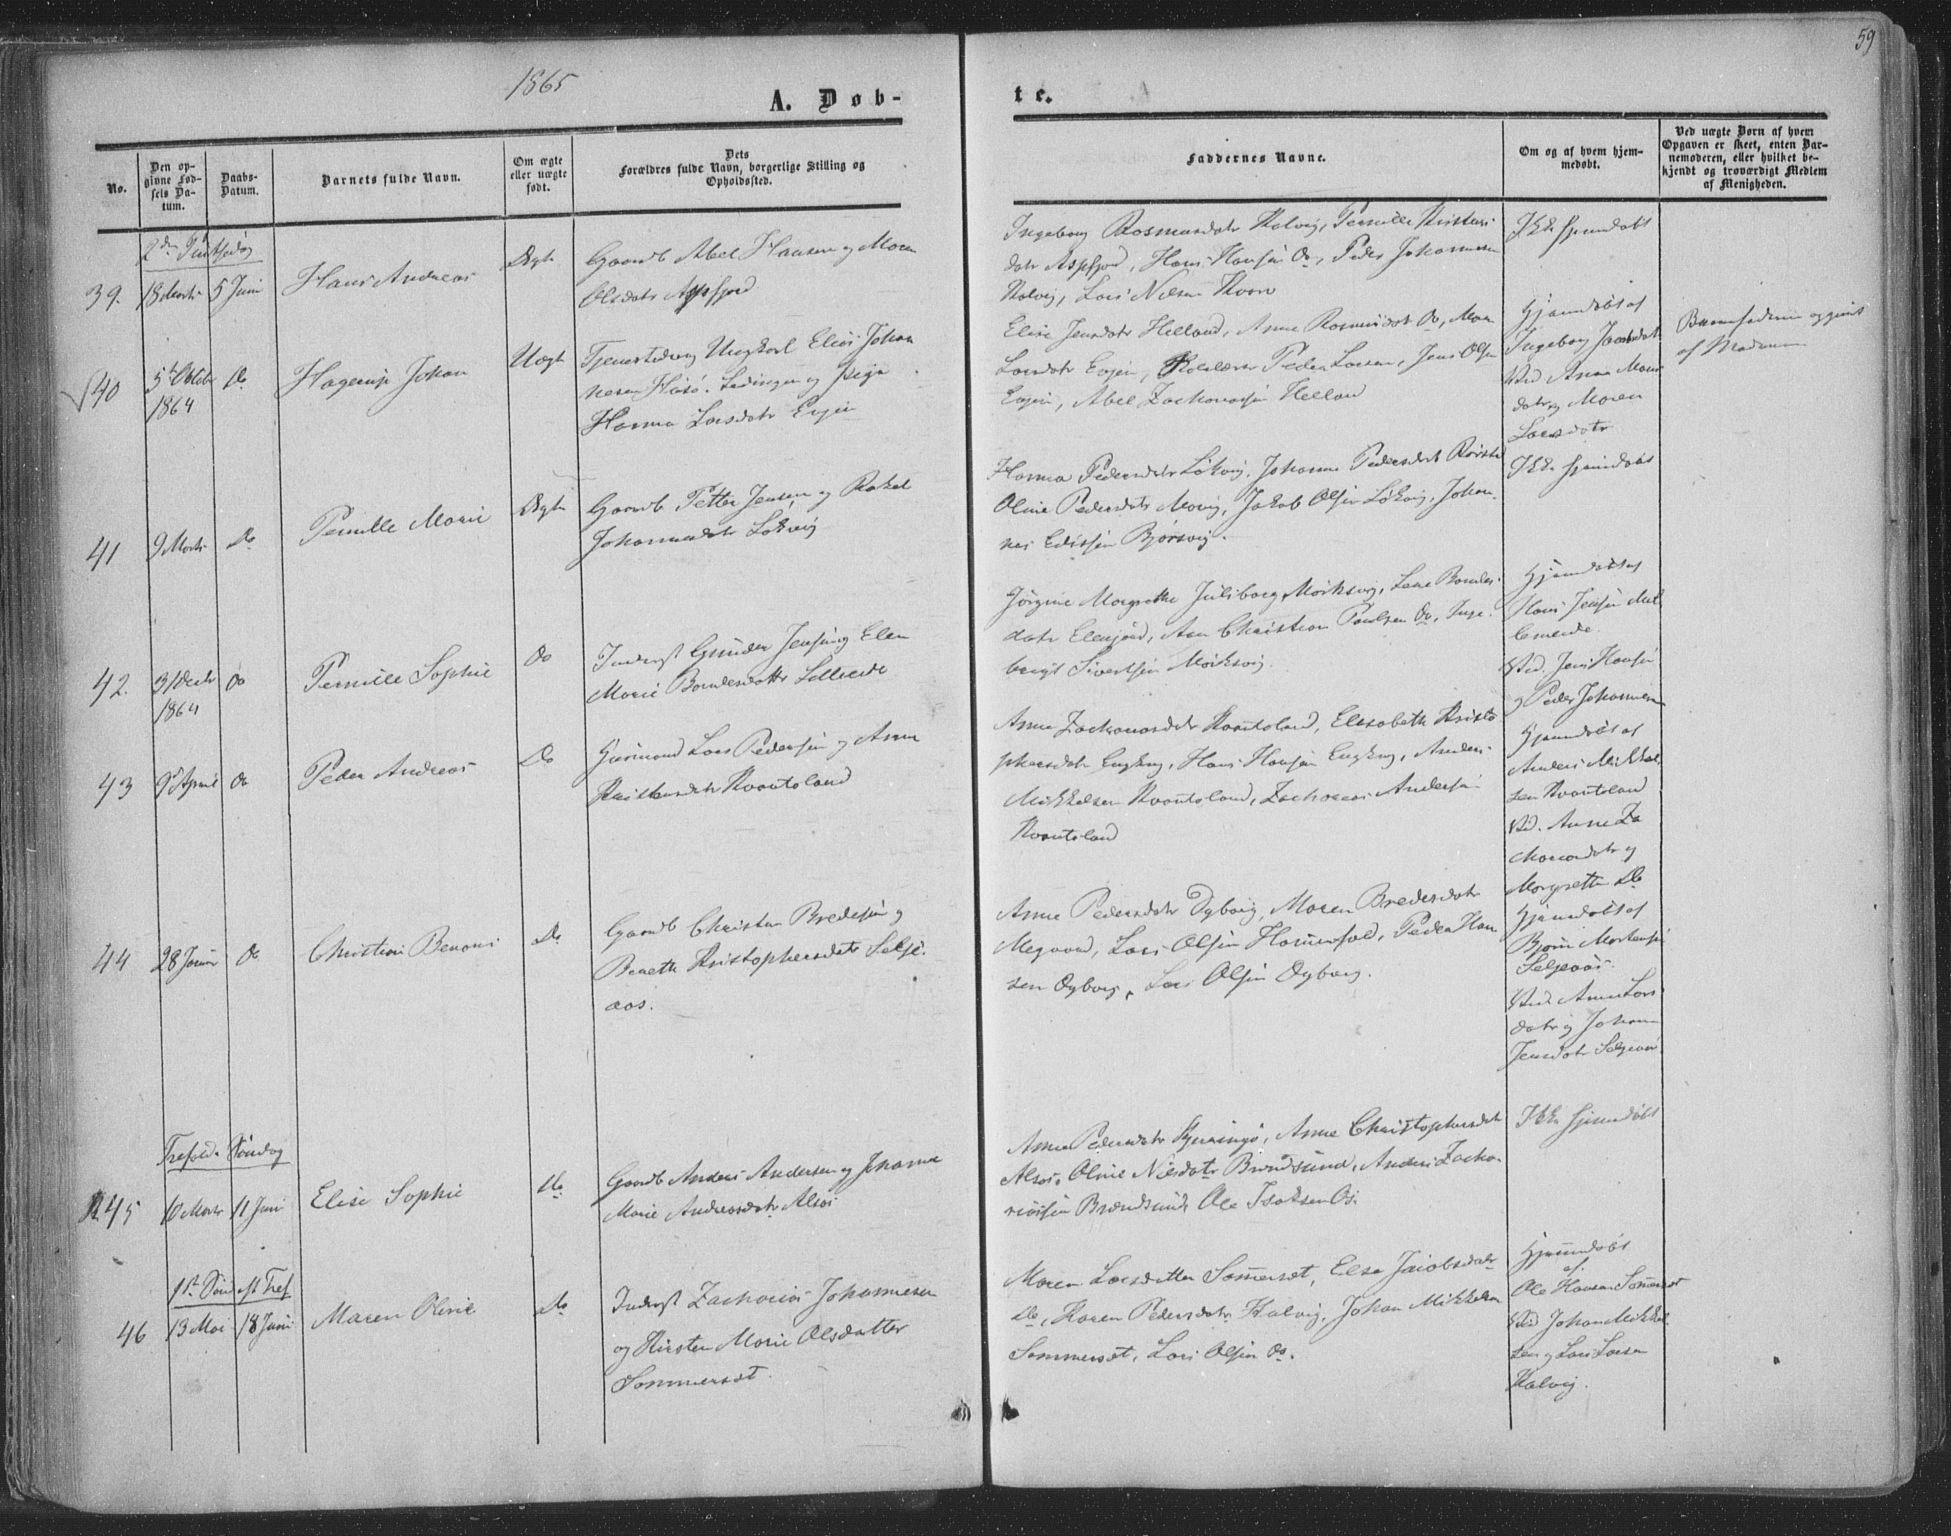 59
1865
A. Døb-
te.
No.
Den opgivne Fødsels Datum.
Daabs-Datum.
Barnets fulde Navn.
Om ægte eller uægte født.
Dets Forældres fulde Navn, borgerlige Stilling og Opholdssted.
Faddernes Navne.
Om og af hvem hjemmedøbt.
Ved uægte Børn af hvem Opgaven er skeet, enten Barnemoderen, eller hvilket bekjendt og troværdigt Medlem af Menigheden.
39.
18 Marts
5 Juni
Hans Andreas
Ægte
Gaardb Abel Hansen og Maren
Olsdatr Aspfjord
Ingeborg Rasmusdatr Kalvig, Pernille Kristens-
datr Aspfjord, Hans Hansen Do, Peder Johannesen
Kalvig, Lars Nilsen
Ikke hjemdøbt
40
5te Octobr
1864
Do
Hagerup Johan
Uægt
Tjenestedreng Ungkarl Elias Johan
nesen og Pige
Hanna Larsdatr Evjen
Elise Jensdatr Helland, Anne Rasmusdatr Do, Maren
Larsdatr Evjen, Peder Larsen, Jens Olsen
Evjen, Abel Zachariasen Helland
Hjemdøbt af
Ingeborg Jacobsdatr
Ved Anna
datr og Maren
Larsdatr
Barnefaderen opgivet
af Moderen
41
9 Marts
Do
Pernille Marie
Ægte
Gaardb Petter Jensen og Rakel
Johannesdatr Løkvig
Hanna Pedersdatr Løkvig, Johanna Pedersdatr
Oline Pedersdatr, Jakob Olsen Løkvig, Johan-
nes
Ikke hjemdøbt
42.
31 Decbr
1864
Do
Pernille Sophie
Do
Inderst Gunder Jensen og Elen
Marie
Jørgine Margrethe Mørksvig, Lene
datr, Christian Paulsen Do, Inge-
brigt Sivertsen Mørksvig.
Hjemdøbt af
Hans Jensen
Ved. Jens Hansen
og Peder Johannesen
43
9de April
Do
Peder Andreas
Do
Huusmand Lars Pedersen og Anna
Kristensdatr Kvantoland
Anne Zachariasdatr Kvantoland, Elisabeth Kristo
phersdatr Engkrog, Hans Hansen Engkrog, Anders
Mikkelsen Kvantoland, Zacharias Andersen
Kvantoland
Hjemdøbt af
Anders Mikkel
sen Kvantoland
Ved. Anne Za
chariasdatr og
Margrethe Do
44
28 Januar
Do
Christian Benoni
Do
Gaardb Christen Bredesen og
Bereth Kristophersdatr Selje-
aas.
Anne Pedersdatr Dybvig, Maren Bredesdatr
Megaard, Lars Olsen, Peder Han
sen Dybvig, Lars Olsen Dybvig.
Hjemdøbt af
Bjørn Mortensen
Seljeaas.
Ved Anne Lars
datr og Johanna
Jensdatr Seljeaas
Trefold. Søndag
45
10 Marts
11 Juni
Elise Sophie
Do
Gaardb Anders Andersen og Johanna
Marie Andreasdatr Alsos
Anne Pedersdatr Kjerringø, Anne Christophersdatr
Alsos, Oline Nilsdatr Brændsund, Anders Zacha-
riasen Brændsund, Ole Isaksen Os.
Ikke hjemdøbt
1st Sønd eft Tref
46
13 Mai
18 Juni
Maren Olivie
Do
Inderst Zacharias Johannesen
og Kirsten Marie Olsdatter
Sommerset.
Maren Larsdatter Somerset, Else Jacobsdatr
Do, Karen Pedersdatr Kalvig, Johan Mikkelsen
Sommerset, Lars Olsen Do.
Hjemmedøbt
af
Ole Hansen Sommerset
Ved Johan Mikkel
sen og Lars Larsen
Kalvig.